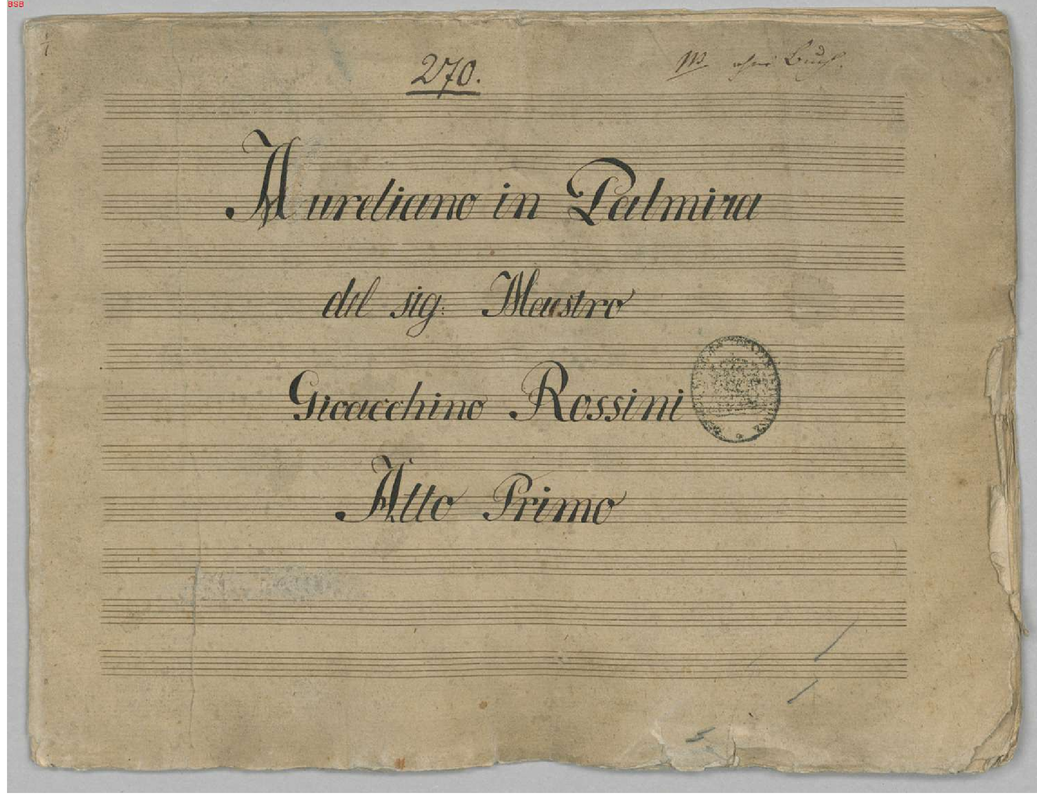 BSB
270.
ohne Buch.
Aureliano in Palmira
del sig: Maestro
Gioacchino Rossini
Atto Primo